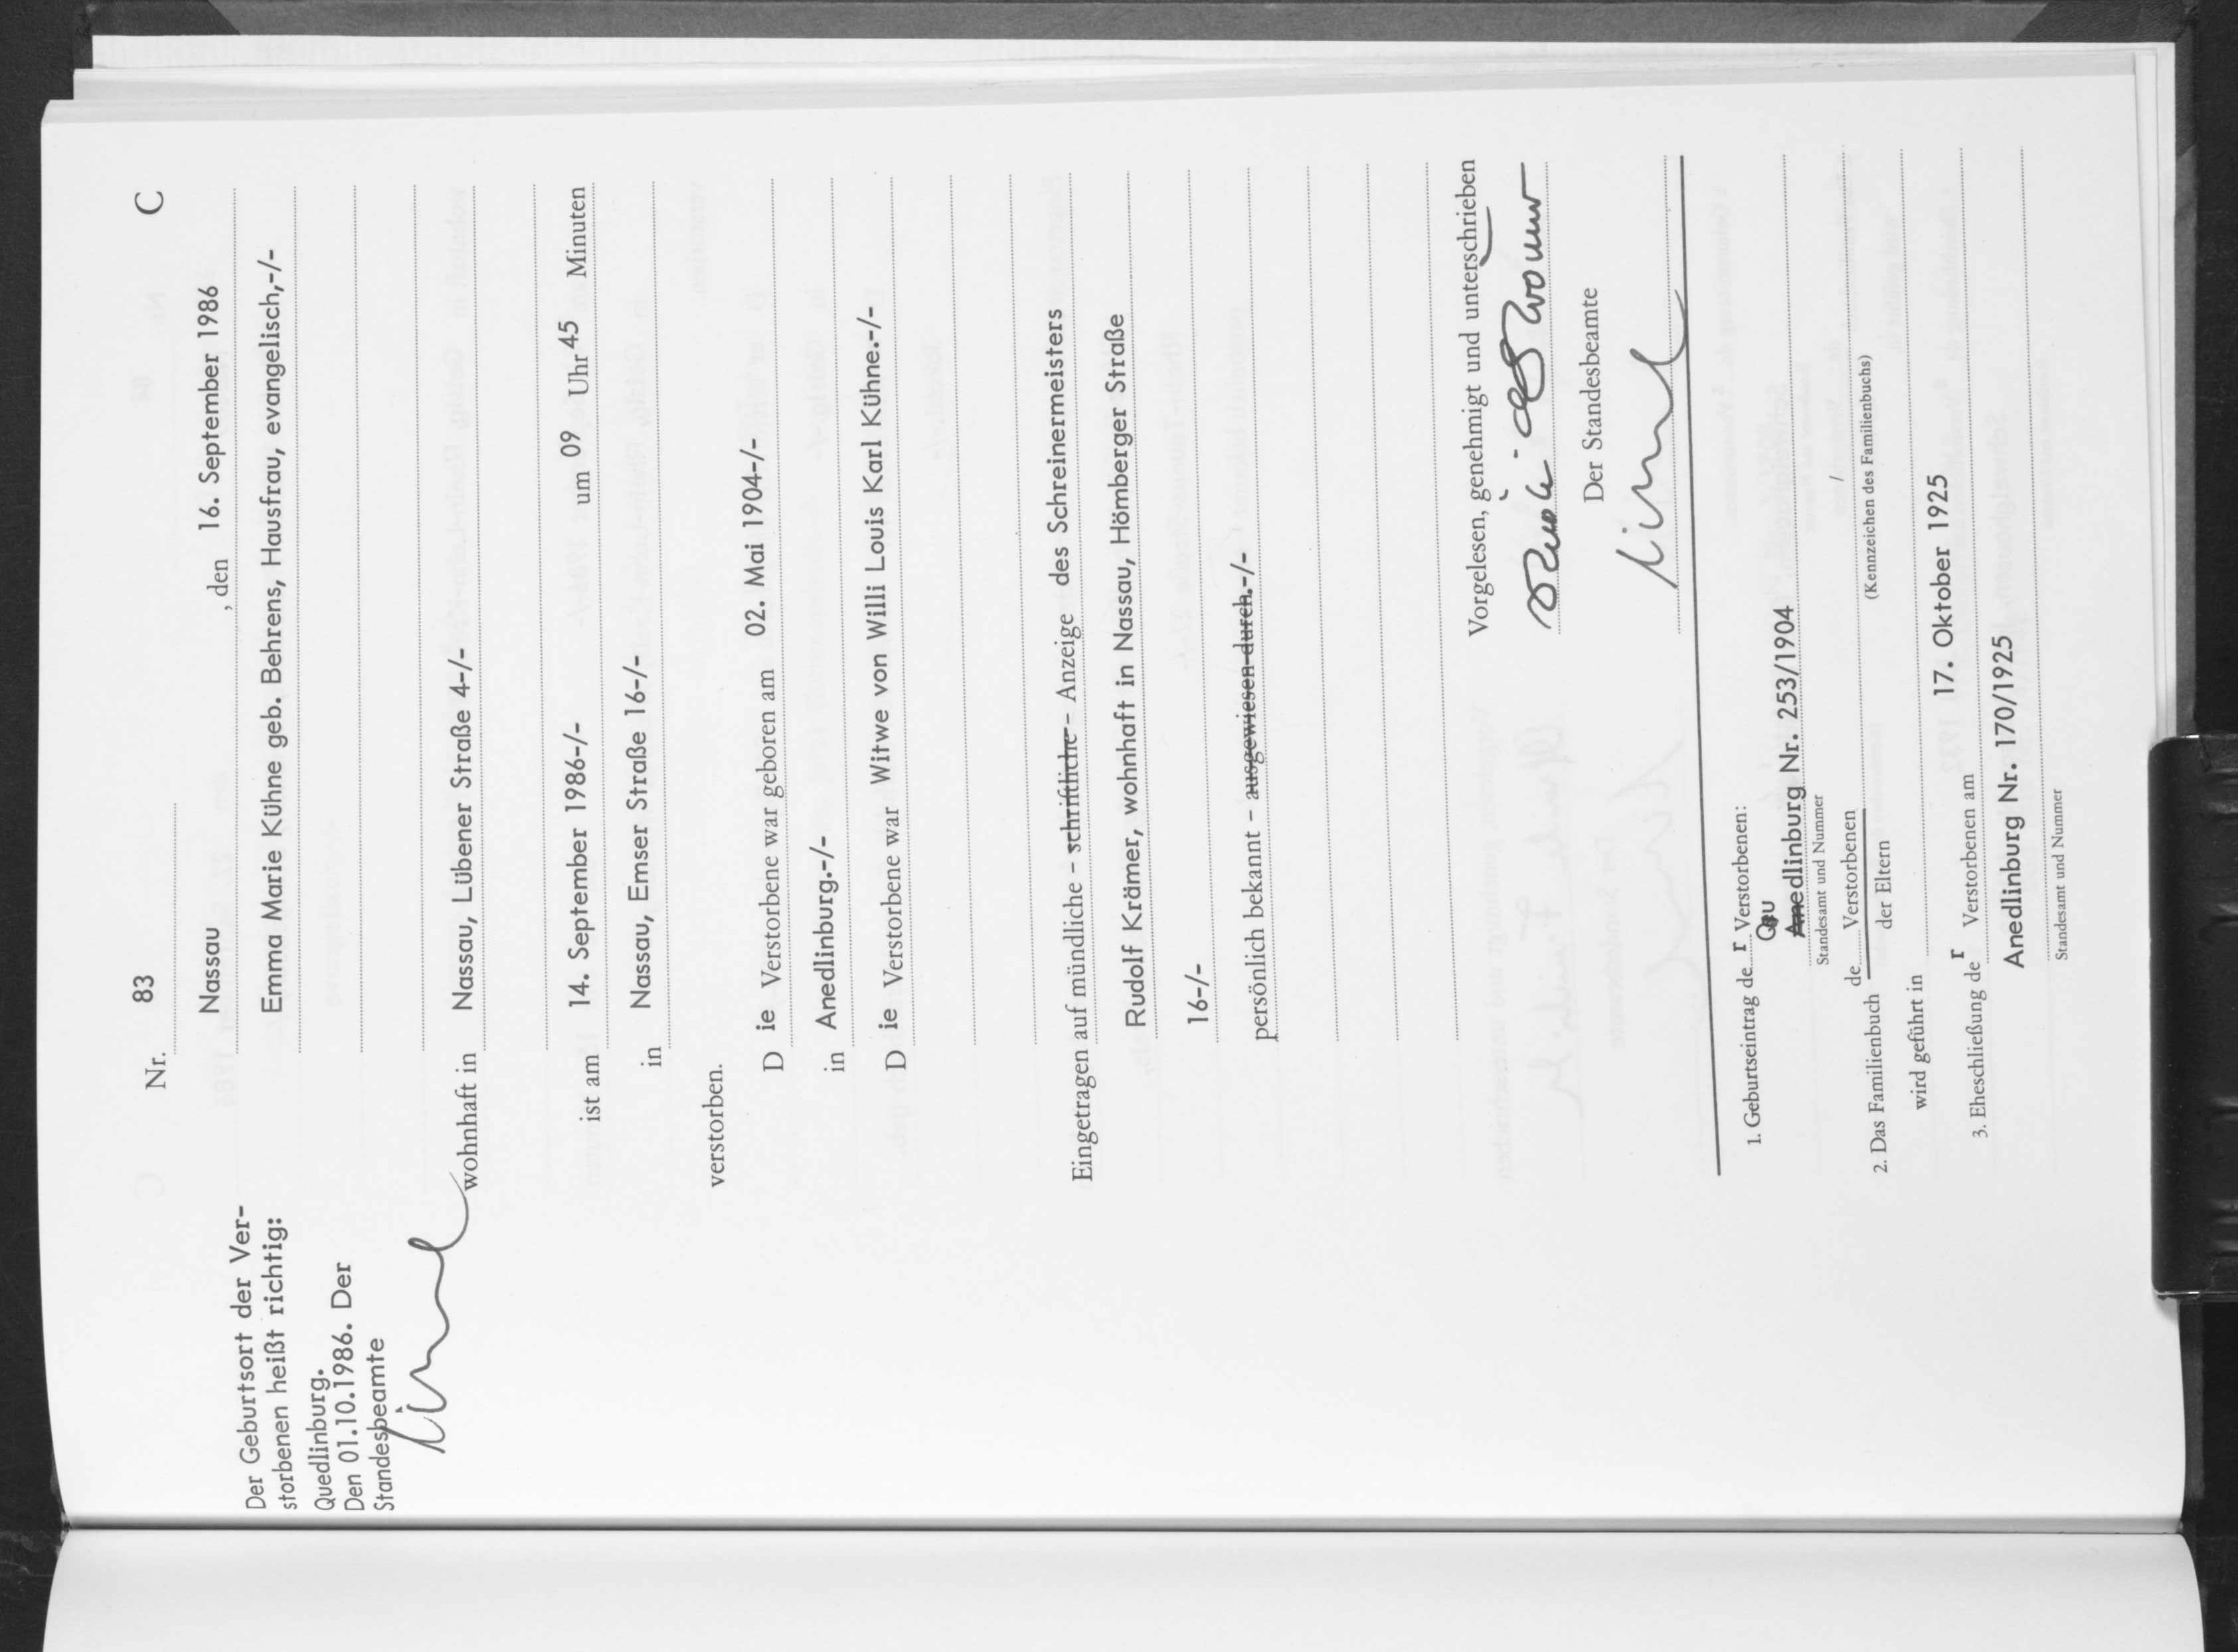 Nr. 83 C
Nassau, den 16. September 1986
Emma Marie Kühne geb. Behrens, Hausfrau, evangelisch,-/-
wohnhaft in Nassau, Lübener Straße 4-/-
ist am 14. September 1986-/- um 09 Uhr 45 Minuten
in Nassau, Emser Straße 16-/-
verstorben.
D ie Verstorbene war geboren am 02. Mai 1904-/-
in Anedlinburg.-/-
D ie Verstorbene war Witwe von Willi Louis Karl Kühne.-/-
Eingetragen auf mündliche – schriftliche – Anzeige des Schreinermeisters
Rudolf Krämer, wohnhaft in Nassau, Hömberger Straße
16-/-
persönlich bekannt – ausgewiesen durch.-/-
Vorgelesen, genehmigt und unterschrieben
Der Standesbeamte
Der Geburtsort der Ver-
storbenen heißt richtig:
Quedlinburg.
Den 01.10.1986. Der
Standesbeamte
1. Geburtseintrag de r Verstorbenen:
Qu
Anedlinburg Nr. 253/1904
Standesamt und Nummer
de Verstorbenen /
2. Das Familienbuch der Eltern (Kennzeichen des Familienbuchs)
wird geführt in
3. Eheschließung de r Verstorbenen am 17. Oktober 1925
Anedlinburg Nr. 170/1925
Standesamt und Nummer